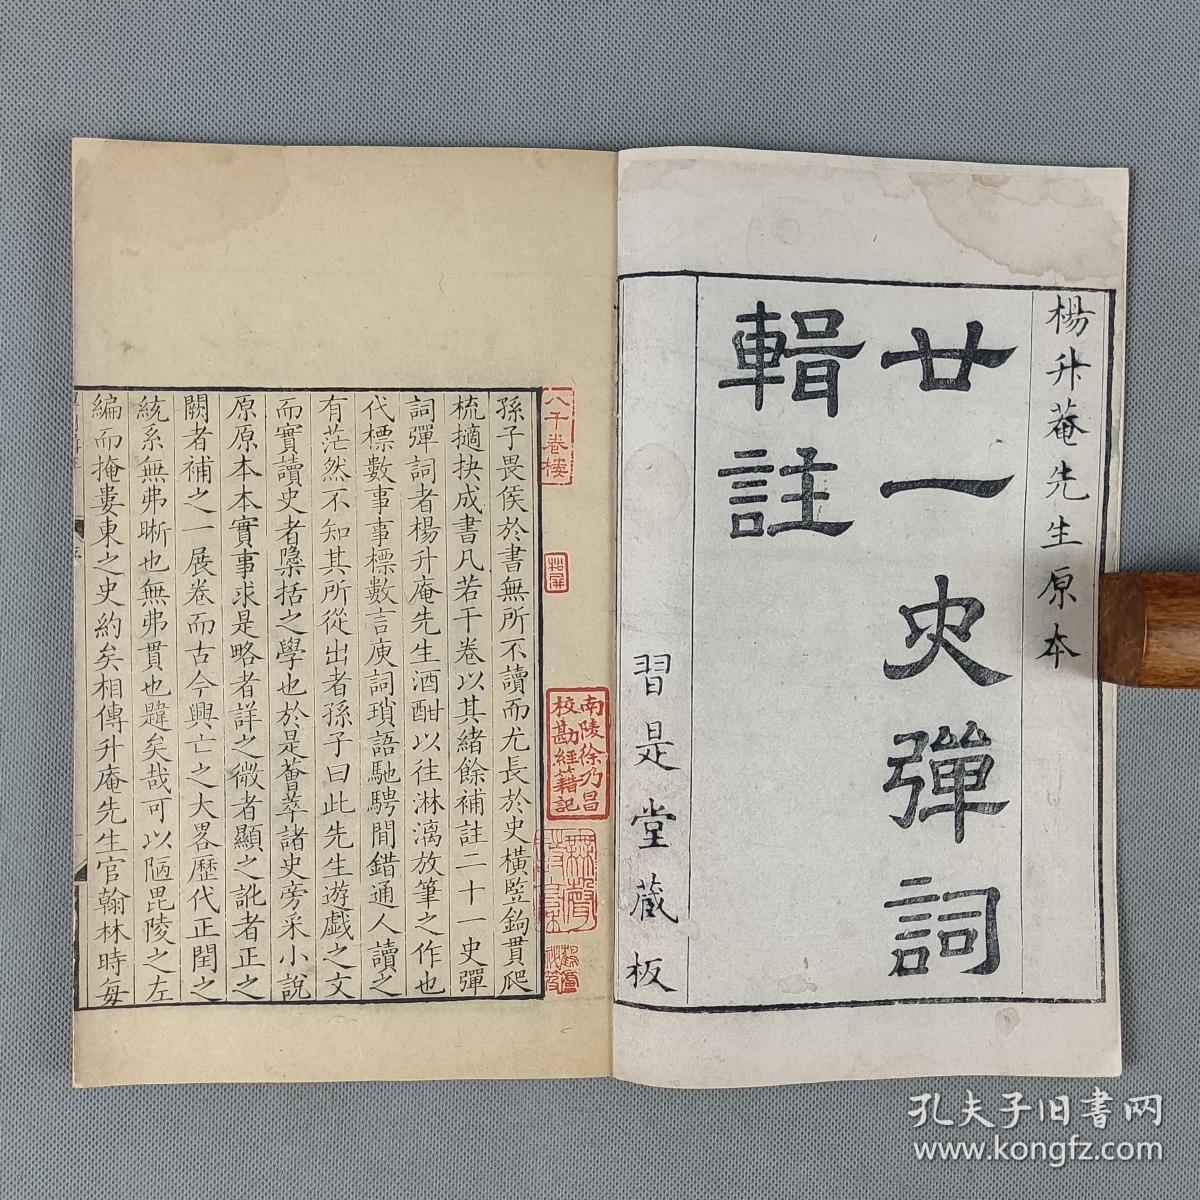 楊升菴先生原本
廿一史彈詞
輯註
習是堂藏板
八千卷樓
南陵徐乃昌
校勘經籍記
孫子畏侯於書無所不讀而尤長於史橫豎鉤貫爬
梳擿抉成書凡若干卷以其緒餘補註二十一史彈
詞彈詞者楊升庵先生酒酣以往淋漓放筆之作也
代標數事事標數言庾詞瑣語馳騁閒錯通人讀之
有茫然不知其所從出者孫子曰此先生遊戲之文
而實讀史者檃括之學也於是薈萃諸史旁采小說
原原本本實事求是略者詳之微者顯之訛者正之
闕者補之一展卷而古今興亡之大畧歷代正閏之
統系無弗晰也無弗貫也韙矣哉可以陋毘陵之左
編而掩婁東之史約矣相傳升庵先生官翰林時每
孔夫子旧书网
www.kongfz.com